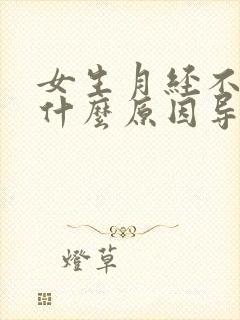 女生月经不
什麼原因导
燈草